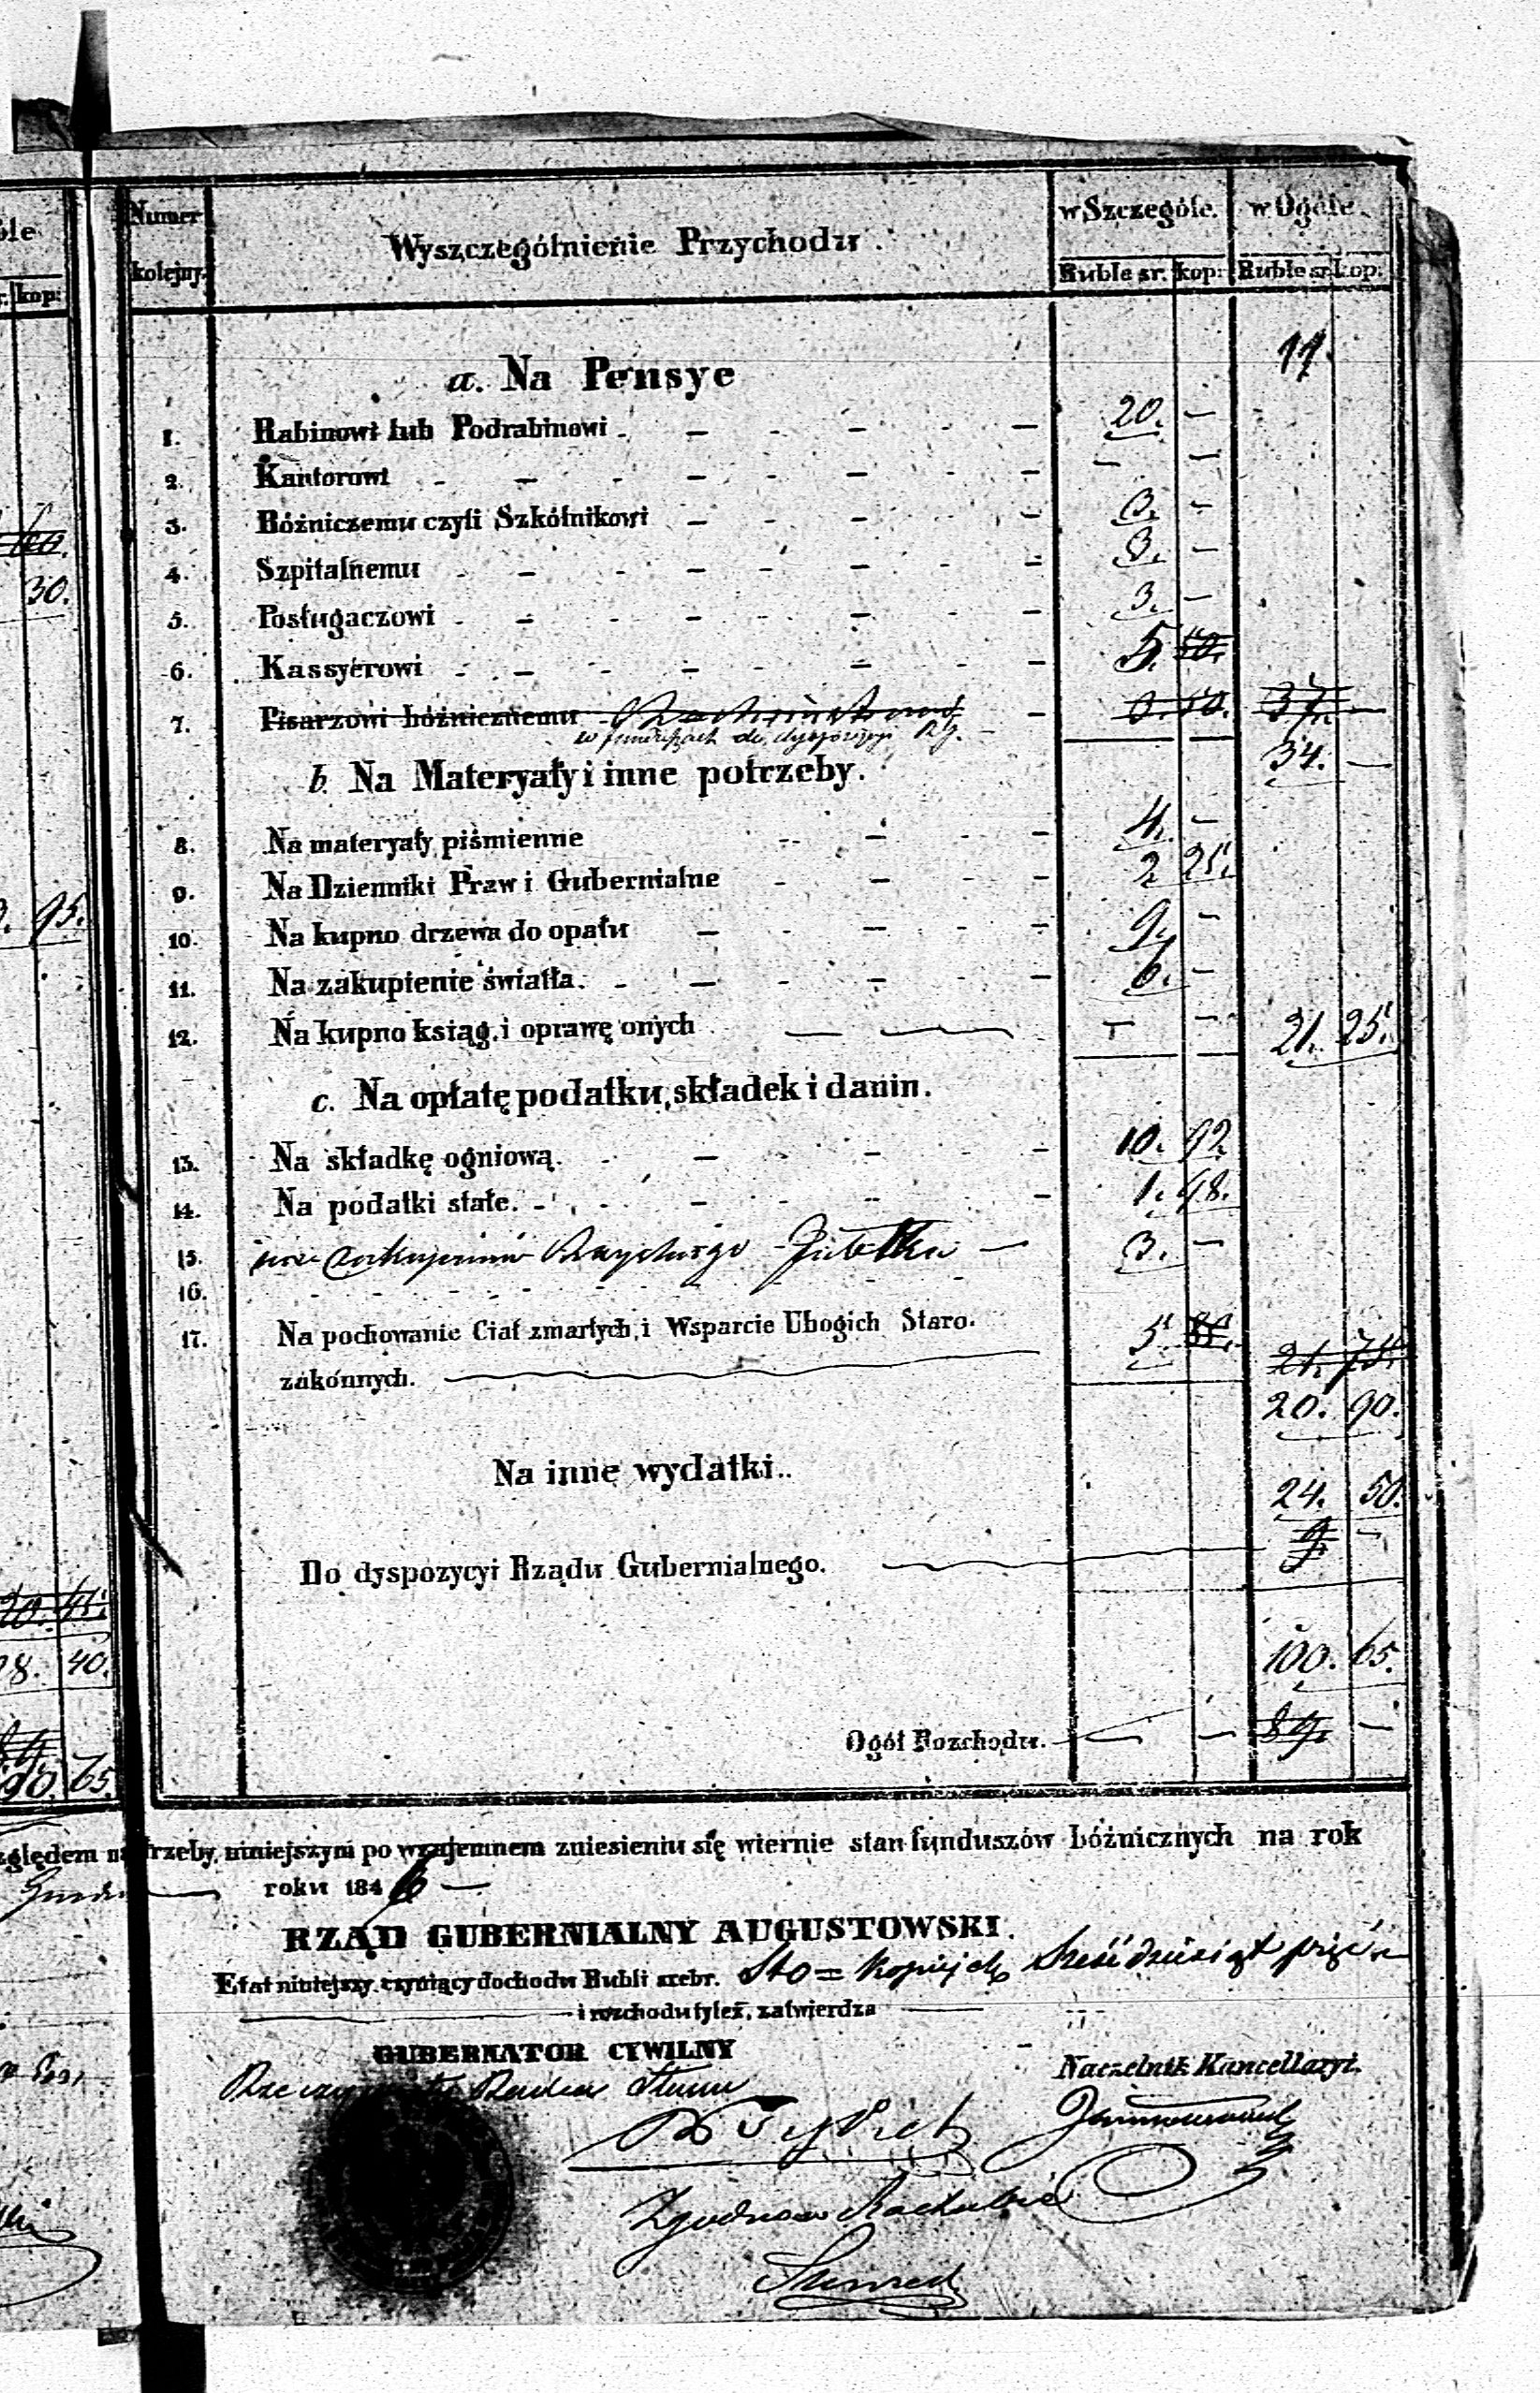 Numer kolejny.
Wyszczególnienie Przychodu.
w Szczególe. w Ogóle.
Ruble sr. kop: Ruble sr. kop:
óle
r. kop:
a. Na Pensye
1. Rabinowi lub Podrabinowi - 20. -
2. Kantorowi - - -
3. Bóżniczemu czyli Szkólnikowi - 3. -
4. Szpitalnemu - 3. -
30.
5. Posługaczowi - 3. -
6. Kassyerowi - 5. 50.
7. Pisarzowi bóżnicznemu - 37. -
w funduszach do dyspozycyi
34. -
b. Na Materyały i inne potrzeby.
8. Na materyały piśmienne - 4. -
9. Na Dzienniki Praw i Gubernialne - 2 25.
95.
10. Na kupno drzewa do opału - 9. -
11. Na zakupienie światła. - 6. -
12. Na kupno ksiąg, i oprawę onych - - 21. 25.
c. Na opłatę podatku, składek i danin.
13. Na składkę ogniową. - 10. 92.
14. Na podatki stałe. - 1. 98.
15. - 3. -
16.
17. Na pochowanie Ciał zmarłych, i Wsparcie Ubogich Staro.
zakonnych. 5. 21. 75.
20. 90.
Na inne wydatki..
24. 50.
Do dyspozycyi Rządu Gubernialnego. 9. -
8. 40.
100. 65.
Ogół Rozchodu. - - 89. -
90. 65.
zględem na trzeby, niniejszym po wzajemnem zniesieniu się wiernie stan funduszów bóżnicznych na rok
roku 1846 -
RZĄD GUBERNIALNY AUGUSTOWSKI.
Etat niniejszy czyniący dochodu Rubli srebr. Sto = kopiejek sześćdziesiąt pięć
i rozchodu tyleż, zatwierdza
GUBERNATOR CYWILNY
Naczelnik Kancellaryi.
Rzeczywisty Radca Stanu
Zgodno Rachubie